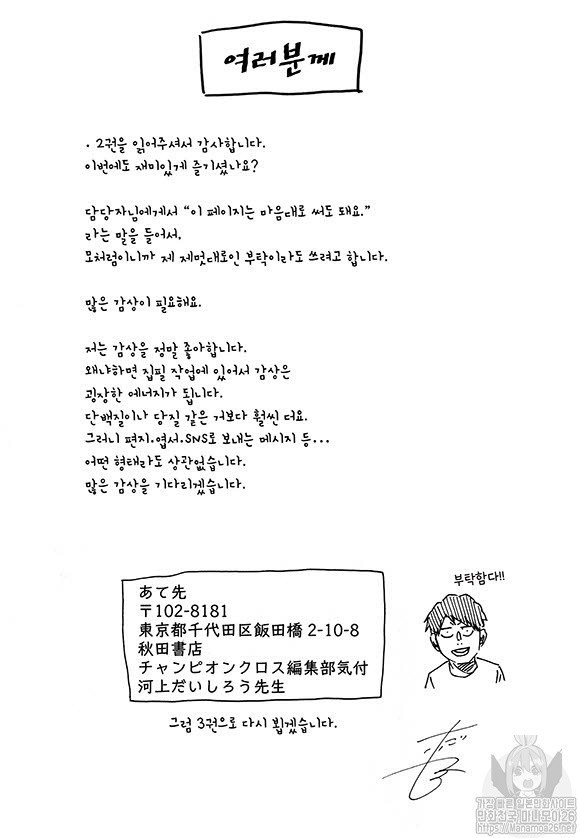 여러분께
· 2권을 읽어주셔서 감사합니다.
이번에도 재미있게 즐기셨나요?
담당자님에게서 “이 페이지는 마음대로 써도 돼요.”
라는 말을 들어서.
모처럼이니까 제 제멋대로인 부탁이라도 쓰려고 합니다.
많은 감상이 필요해요.
저는 감상을 정말 좋아합니다.
왜냐하면 집필 작업에 있어서 감상은
굉장한 에너지가 됩니다.
단백질이나 당질 같은 거보다 훨씬 더요.
그러니 편지·엽서·SNS로 보내는 메시지 등...
어떤 형태라도 상관없습니다.
많은 감상을 기다리겠습니다.
부탁함다!!
あて先
〒102-8181
東京都千代田区飯田橋 2-10-8
秋田書店
チャンピオンクロス編集部気付
河上だいしろう先生
그럼 3권으로 다시 뵙겠습니다.
가장 빠른 일본만화사이트
만화천국 마나모아26
https://Manamoa26.com